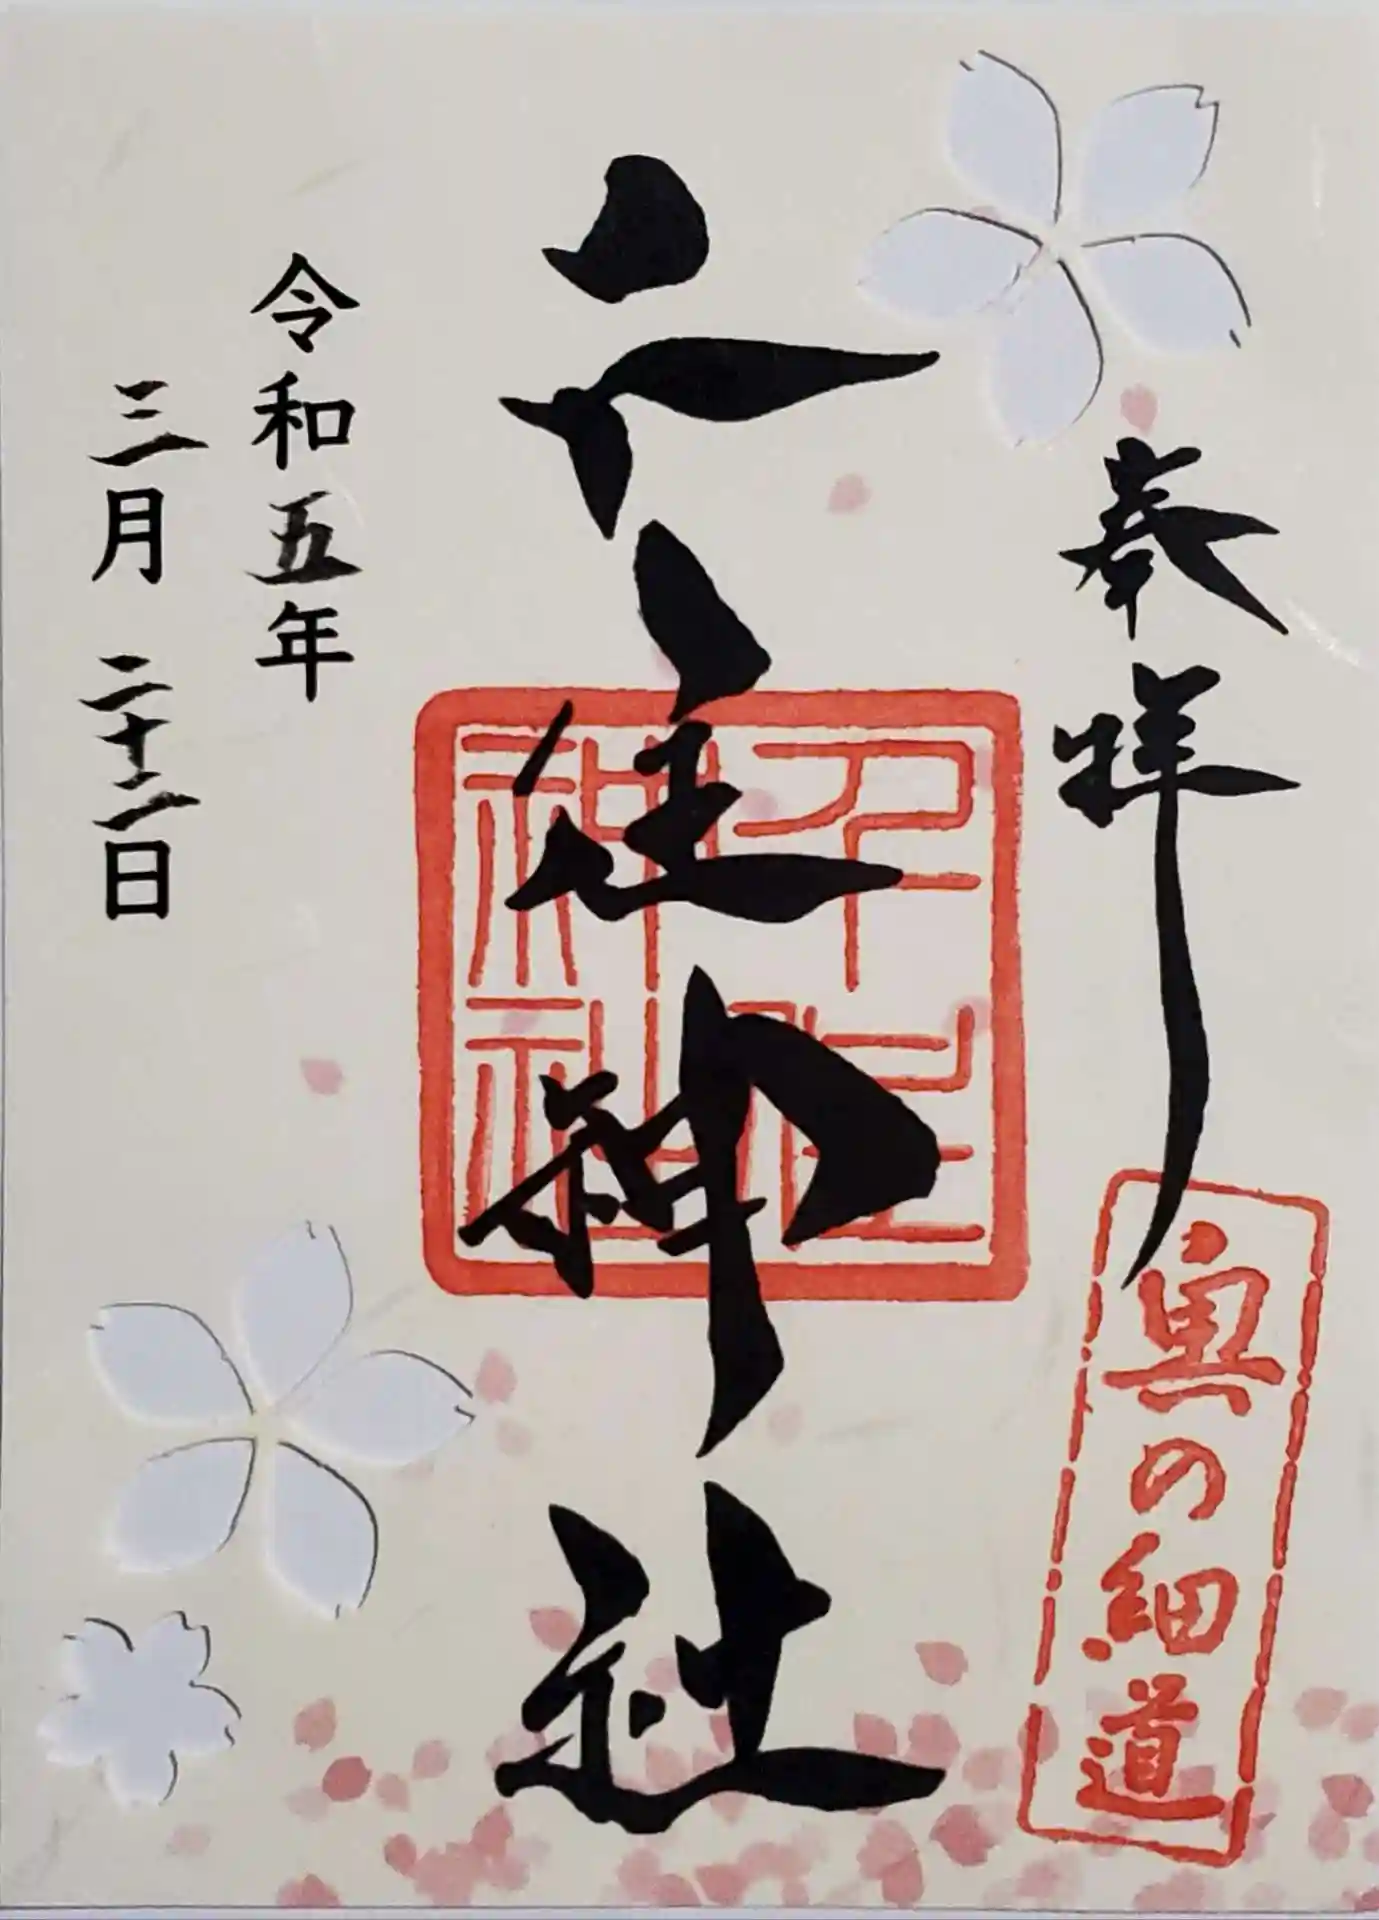 奉拝
奥の細道
千住神社
千住
神社
令和五年
三月二十二日